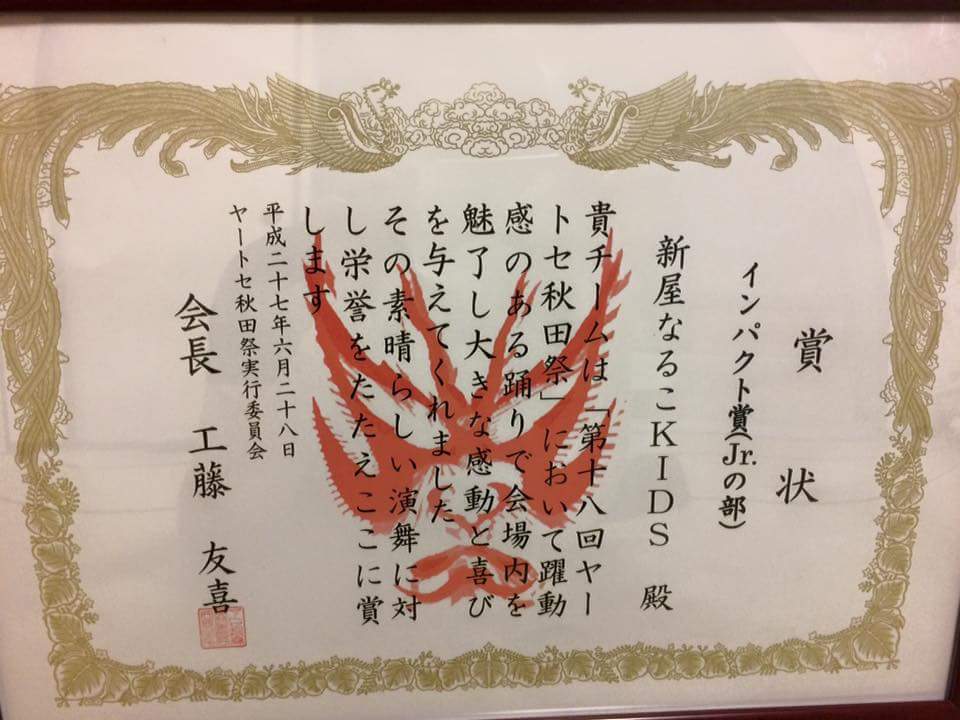 賞状
インパクト賞(Jr.の部)
新屋なるこKIDS 殿
貴チームは「第十八回ヤー
トセ秋田祭」において躍動
感のある踊りで会場内を
魅了し大きな感動と喜び
を与えてくれました
その素晴らしい演舞に対
し栄誉をたたえここに賞
します
平成二十七年六月二十八日
ヤートセ秋田祭実行委員会
会長 工藤 友喜